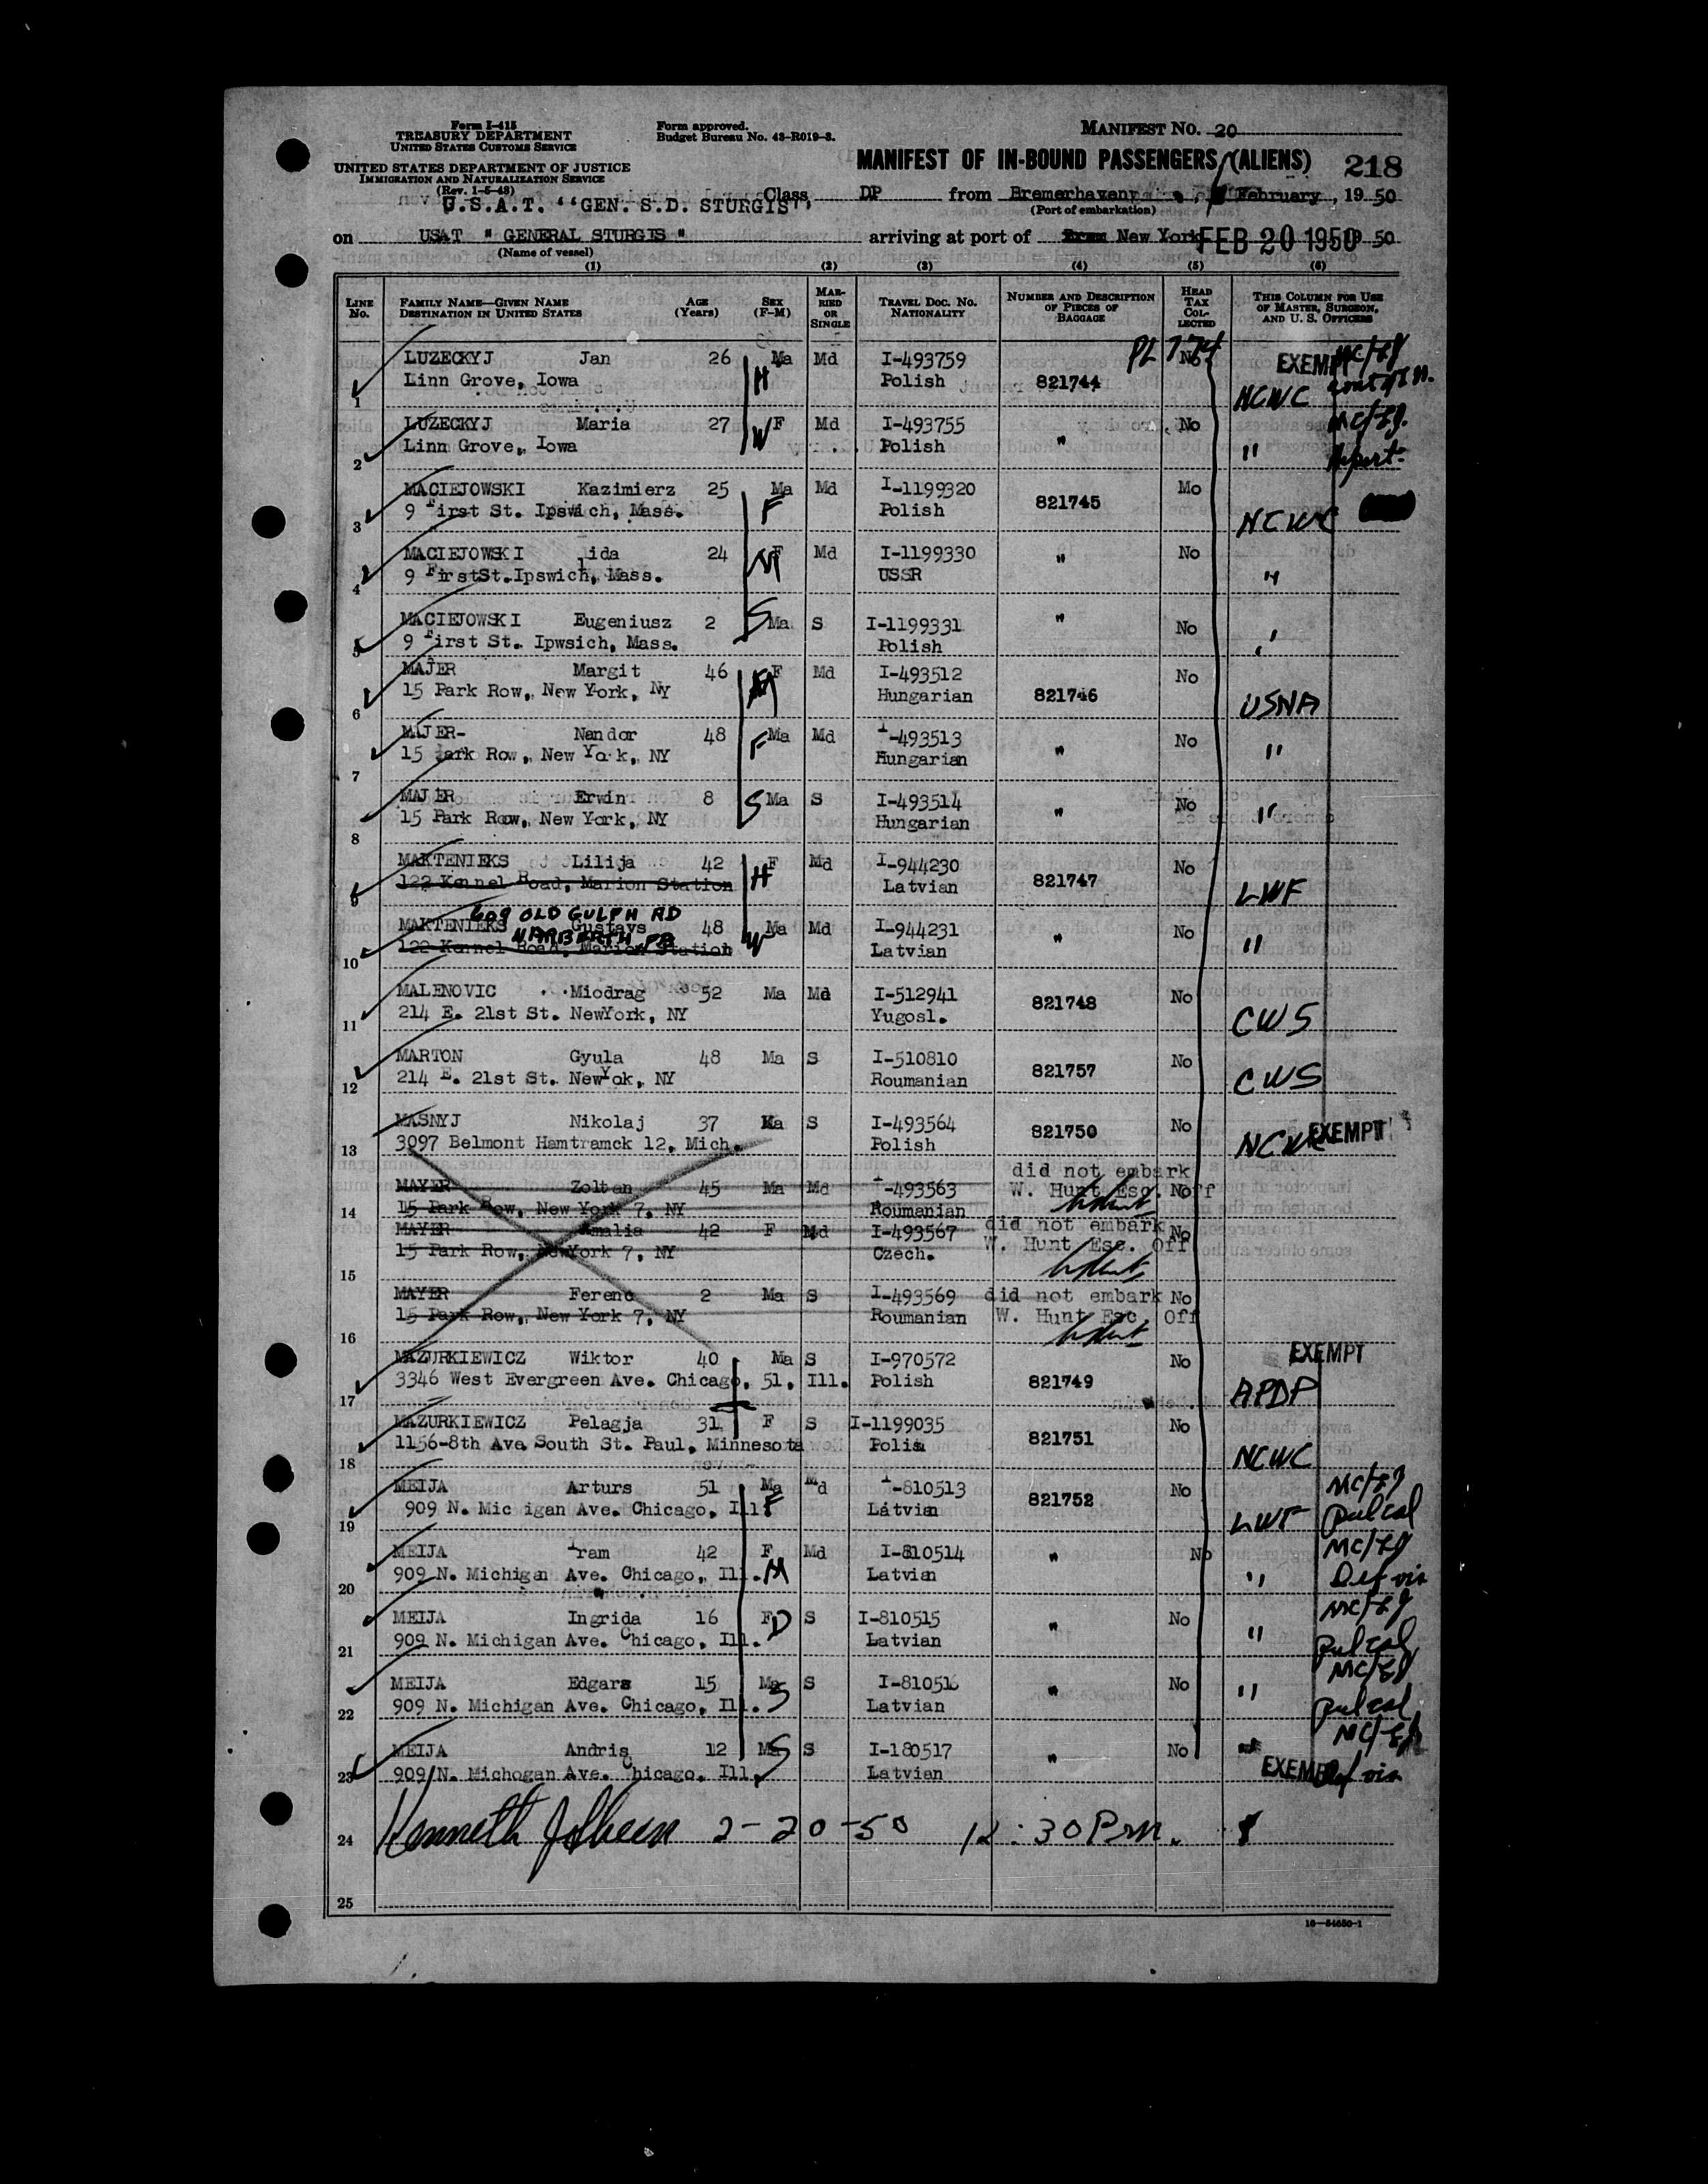 Form I-415
TREASURY DEPARTMENT
UNITED STATES CUSTOMS SERVICE
UNITED STATES DEPARTMENT OF JUSTICE
IMMIGRATION AND NATURALIZATION SERVICE
(Rev. 1-5-48)
Form approved.
Budget Bureau No. 43-R019-3.
MANIFEST NO. 20
MANIFEST OF IN-BOUND PASSENGERS (ALIENS) 218
U.S.A.T. "GEN. S.D. STURGIS"
Class DP from Bremerhaven, February, 19 50
(Port of embarkation)
on USAT " GENERAL STURGIS " arriving at port of New York FEB 20 1950 50
(Name of vessel)
(1) (2) (3) (4) (5) (6)
LINE NO. FAMILY NAME—GIVEN NAME DESTINATION IN UNITED STATES AGE (Years) SEX (F-M) MARRIED OR SINGLE TRAVEL DOC. NO. NATIONALITY NUMBER AND DESCRIPTION OF PIECES OF BAGGAGE HEAD TAX COLLECTED THIS COLUMN FOR USE OF MASTER, SURGEON, AND U. S. OFFICERS
LUZECKYJ Jan 26 Ma Md I-493759 PL 774 No EXEMPT
1 Linn Grove, Iowa H Polish 821744 NCWC
LUZECKYJ Maria 27 F Md I-493755 " No
2 Linn Grove, Iowa W Polish "
MACIEJOWSKI Kazimierz 25 Ma Md I-1199320 Mo
3 9 First St. Ipswich, Mass. F Polish 821745 NCWC
MACIEJOWSKI lida 24 F Md I-1199330 " No
4 9 FirstSt.Ipswich, Mass. M USSR "
MACIEJOWSKI Eugeniusz 2 Ma S I-1199331 " No
5 9 First St. Ipwsich, Mass. S Polish "
MAJER Margit 46 F Md I-493512 No
6 15 Park Row, New York, NY M Hungarian 821746 USNA
MAJER- Nandor 48 Ma Md I-493513 No
7 15 Park Row, New York, NY F Hungarian " "
MAJER Erwin 8 Ma S I-493514 No
8 15 Park Row, New York, NY S Hungarian " "
MAKTENIEKS Lilija 42 F Md I-944230 No
9 122 Kennel Road, Marion Station H Latvian 821747 LWF
609 OLD GULPH RD
MAKTENIEKS Gustavs 48 Ma Md I-944231 No
NARBERTH PA
10 122 Kennel Road, Marion Station W Latvian " "
MALENOVIC Miodrag 52 Ma Md I-512941 No
11 214 E. 21st St. NewYork, NY Yugosl. 821748 CWS
MARTON Gyula 48 Ma S I-510810 No
12 214 E. 21st St. NewYok, NY Roumanian 821757 CWS
MASNYJ Nikolaj 37 Ma S I-493564 No
13 3097 Belmont Hamtramck 12, Mich. Polish 821750 NCWC EXEMPT
did not embark
MAYER Zoltan 45 Ma Md I-493563 W. Hunt Esc. Off No
14 15 Park Row, New York 7, NY Roumanian
MAYER Amalia 42 F Md I-493567 did not embark No
15 15 Park Row, NewYork 7, NY Czech. W. Hunt Esc. Off
MAYER Ferenc 2 Ma S I-493569 did not embark No
16 15 Park Row, New York 7, NY Roumanian W. Hunt Esc Off
MAZURKIEWICZ Wiktor 40 Ma S I-970572 No EXEMPT
17 3346 West Evergreen Ave. Chicago, 51, Ill. Polish 821749 APDP
MAZURKIEWICZ Pelagja 31 F S I-1199035 No
18 1156-8th Ave South St. Paul, Minnesota 821751 NCWC
MEIJA Arturs 51 Ma Md I-810513 No MC/
19 909 N. Mic igan Ave. Chicago, Ill. F Latvian 821752 LWF pul cal
MEIJA Iram 42 F Md I-810514 No MC/
20 909 N. Michigan Ave. Chicago, Ill. M Latvian " " Def vis
MEIJA Ingrida 16 F S I-810515 No MC/
21 909 N. Michigan Ave. Chicago, Ill. D Latvian " " pul cal
MEIJA Edgars 15 Ma S I-810516 No MC/
22 909 N. Michigan Ave. Chicago, Ill. S Latvian " " pul cal
MEIJA Andris 12 Ma S I-180517 No MC/
23 909 N. Michogan Ave. Chicago, Ill. S Latvian " " EXEMPT Def vis
24 Kenneth 2-20-50 12:30 P.m.
25
16—54650-1